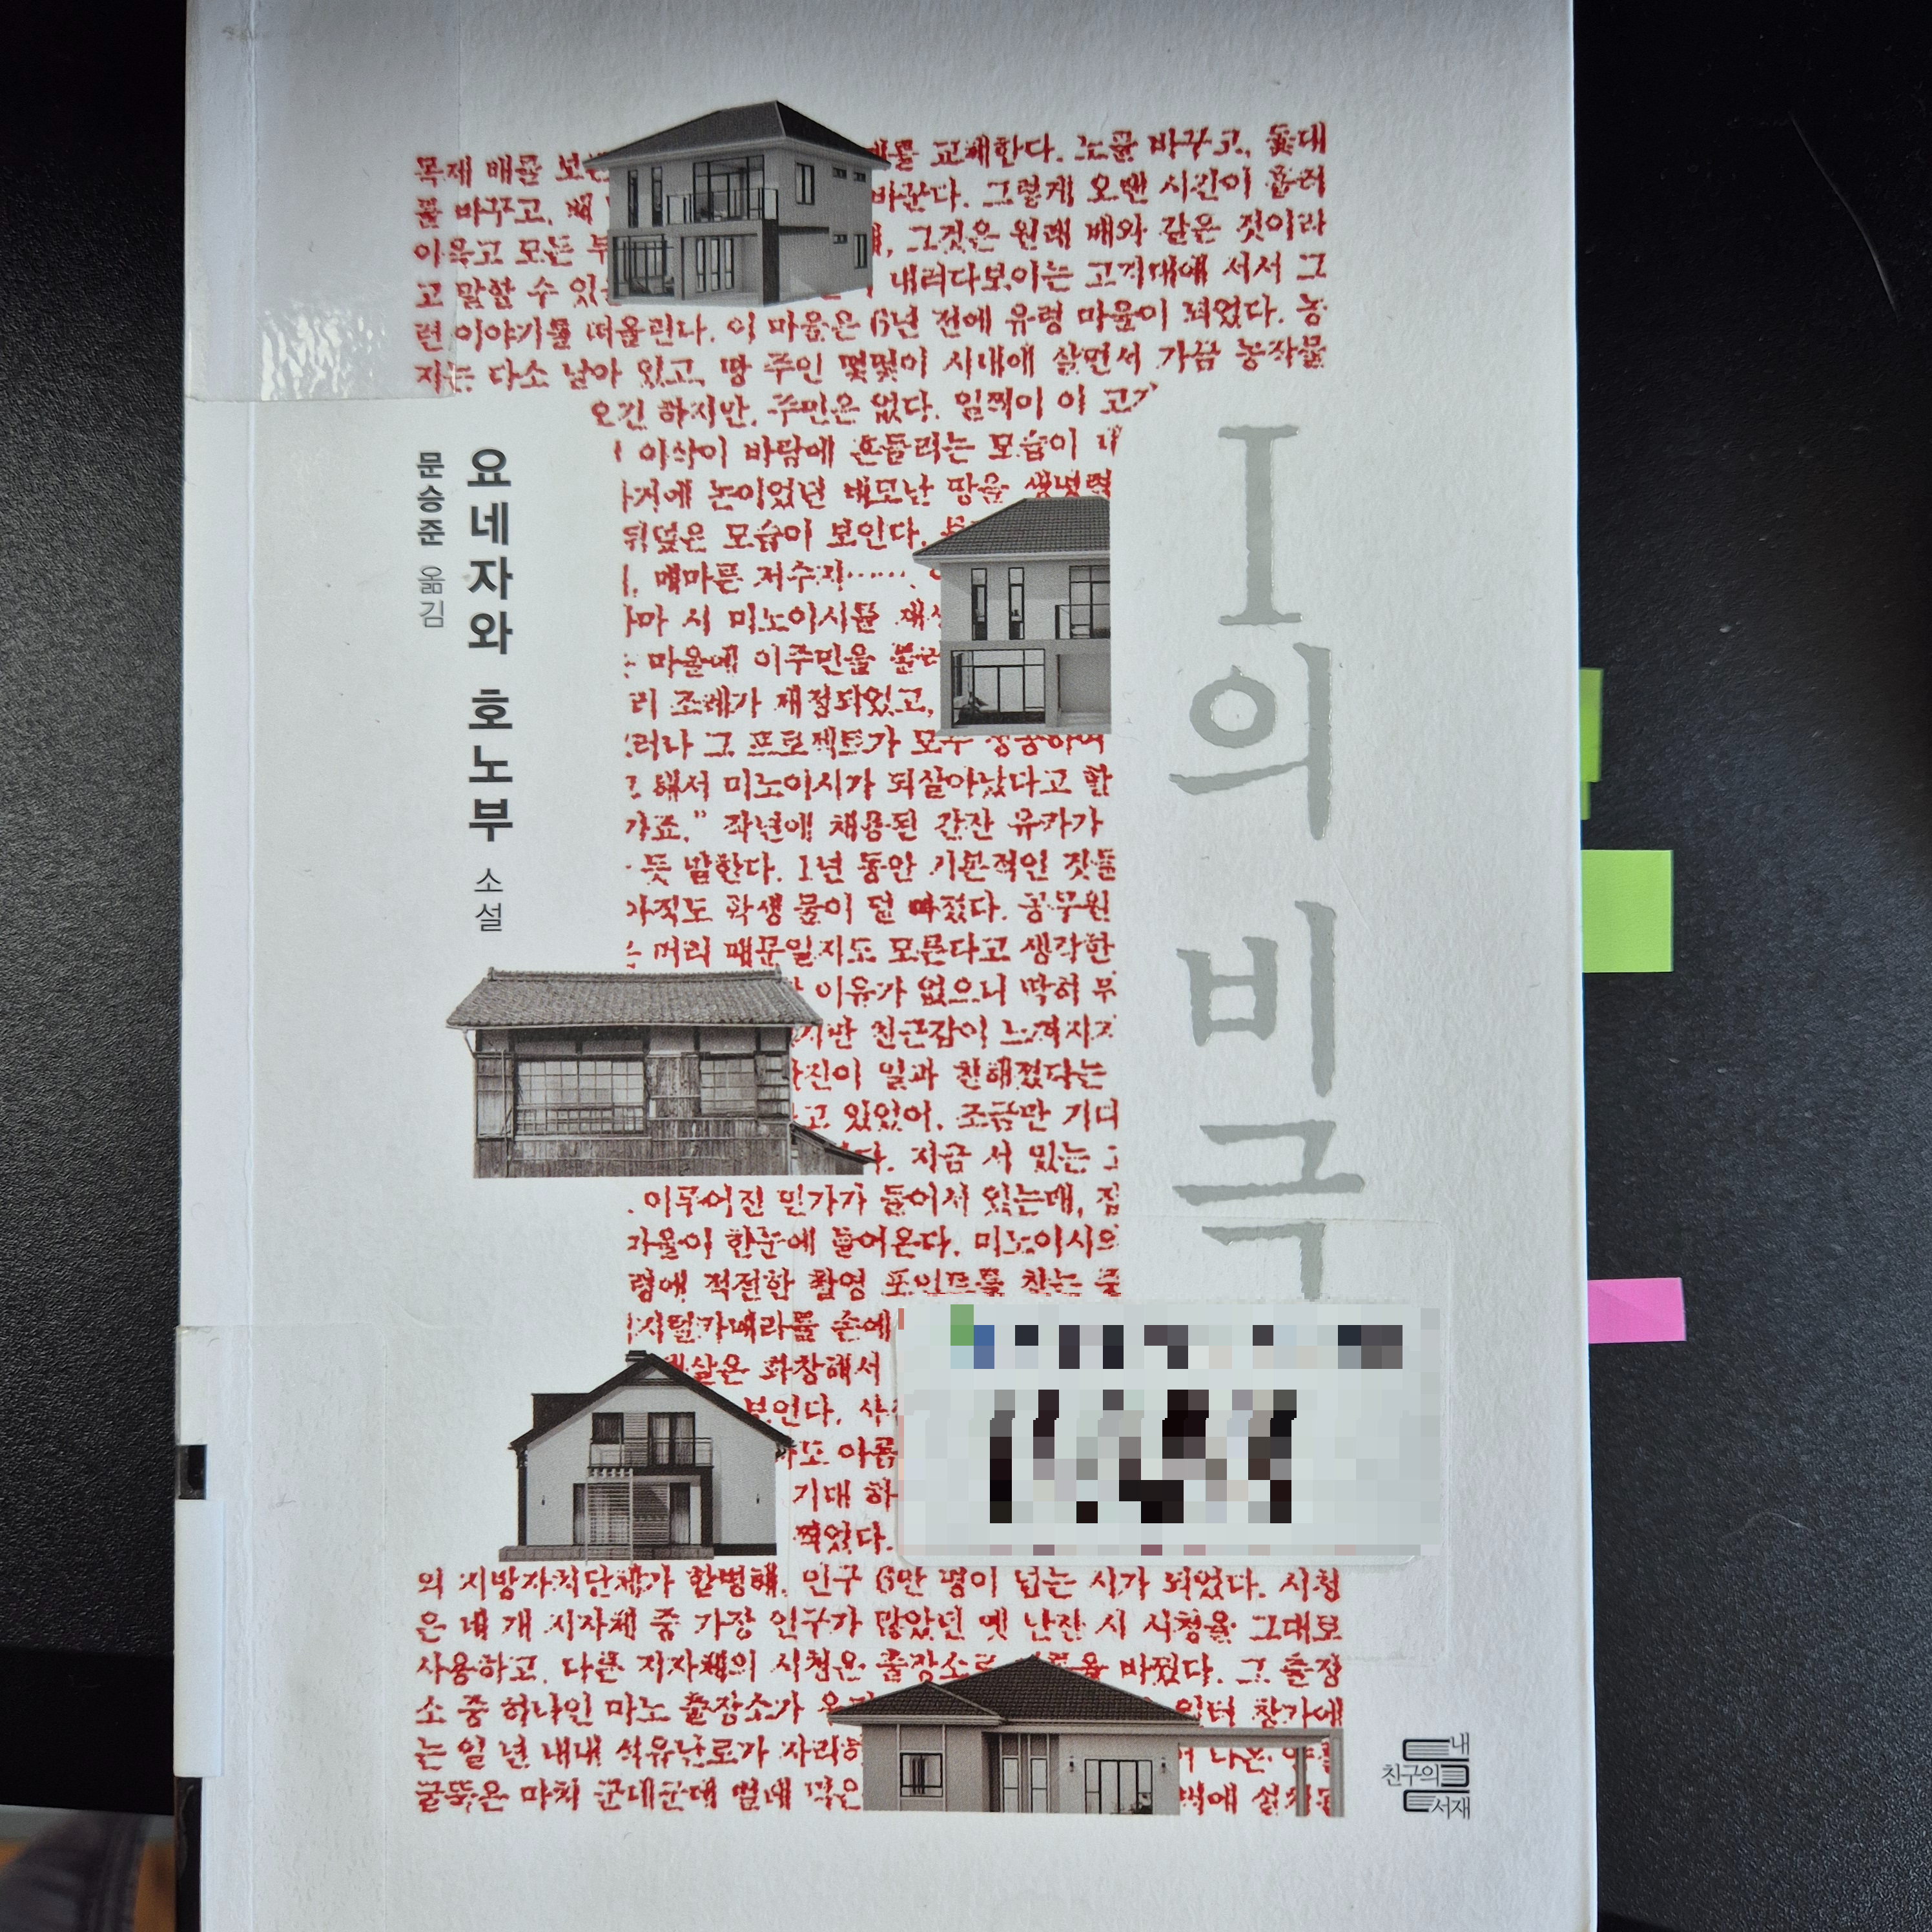 목제 배를 보
를 교체한다. 노를 바꾸고, 돛대
를 바꾸고, 배
바꾼다. 그렇게 오랜 시간이 흘러
이윽고 모든 부
그것은 원래 배와 같은 것이라
고 말할 수 있
내려다보이는 고지대에 서서 그
런 이야기를 떠올린다. 이 마을은 6년 전에 유령 마을이 되었다. 농
지는 다소 남아 있고, 땅 주인 몇몇이 시내에 살면서 가끔 농작물
오긴 하지만, 주민은 없다. 일찍이 이 고
이삭이 바람에 흔들리는 모습이
거에 논이었던 네모난 땅을 생명력
뒤덮은 모습이 보인다.
메마른 저수지……,
마 시 미노이시를 재생
마을에 이주민을 불러
리 조례가 제정되었고,
러나 그 프로젝트가 모두 성공하여
해서 미노이시가 되살아났다고 할
가죠." 작년에 채용된 간잔 유카가
듯 말한다. 1년 동안 기본적인 것들
아직도 학생 물이 덜 빠졌다. 공무원
머리 때문일지도 모른다고 생각한
이유가 없으니 딱히 무
지만 친근감이 느껴지
진이 일과 친해졌다는
고 있었어. 조금만 기다
다. 지금 서 있는 그
이루어진 민가가 들어서 있는데, 집
마을이 한눈에 들어온다. 미노이시의
령에 적절한 촬영 포인트를 찾는 중
디지털카메라를 손에
살은 화창해서
보인다. 사
도 아름
기대 하
찍었다.
의 지방자치단체가 합병해, 인구 6만 명이 넘는 시가 되었다. 시청
은 네 개 지자체 중 가장 인구가 많았던 옛 난잔 시 시청을 그대로
사용하고, 다른 지자체의 시청은 출장소로 이름을 바꿨다. 그 출장
소 중 하나인 마노 출장소가 우리
일터 창가에
는 일 년 내내 석유난로가 자리하
굴뚝은 마치 군데군데 벌레 먹은
벽에 설치된
I의 비극
요네자와 호노부 소설
문승준 옮김
내
친구의
서재